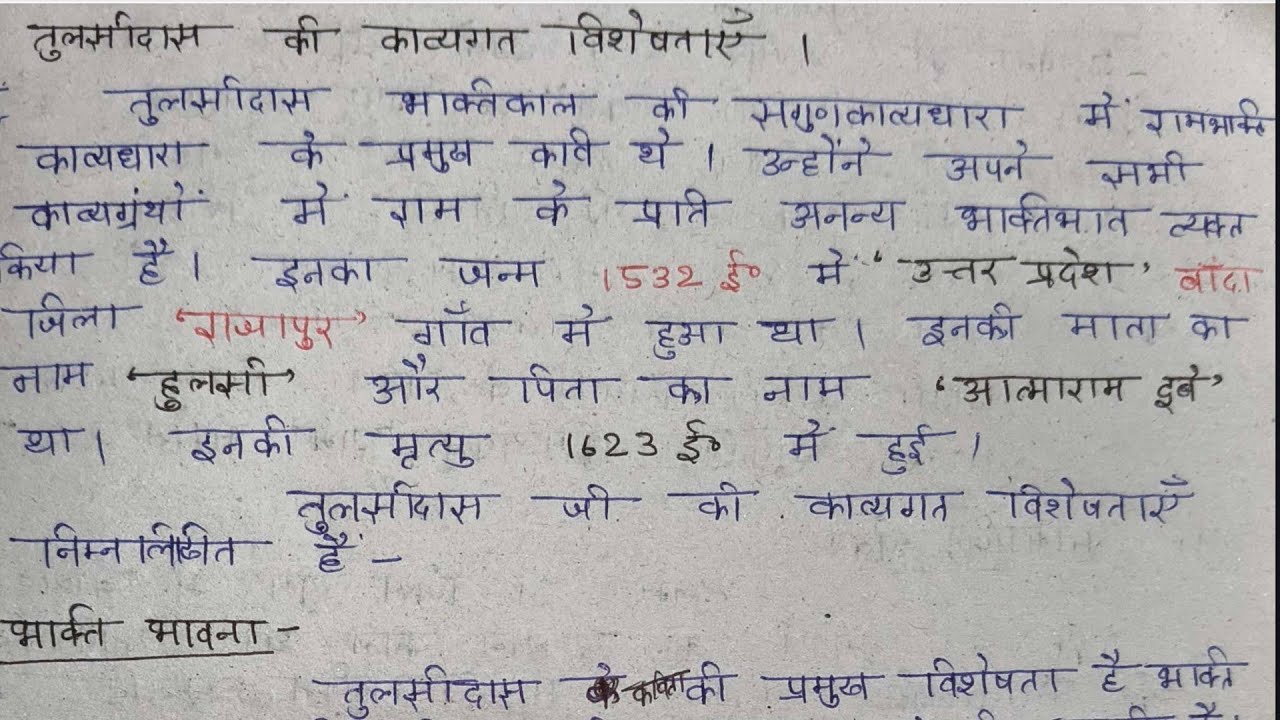 तुलसीदास की काव्यगत विशेषताएँ ।
तुलसीदास भाक्तिकाल की सगुणकाव्यधारा में रामभाक्ति
काव्यधारा के प्रमुख कवि थे । उन्होंने अपने सभी
काव्यग्रंथों में राम के प्रति अनन्य भाक्तिभाव व्यक्त
किया है । इनका जन्म 1532 ई० में ‘उत्तर प्रदेश’ बाँदा
जिला ‘राजापुर’ गाँव में हुआ था । इनकी माता का
नाम ‘हुलसी’ और पिता का नाम ‘आत्माराम दुबे’
था । इनकी मृत्यु 1623 ई० में हुई ।
तुलसीदास जी की काव्यगत विशेषताएँ
निम्नलिखीत हैं –
भाक्ति भावना –
तुलसीदास कविता की प्रमुख विशेषता है भाक्ति